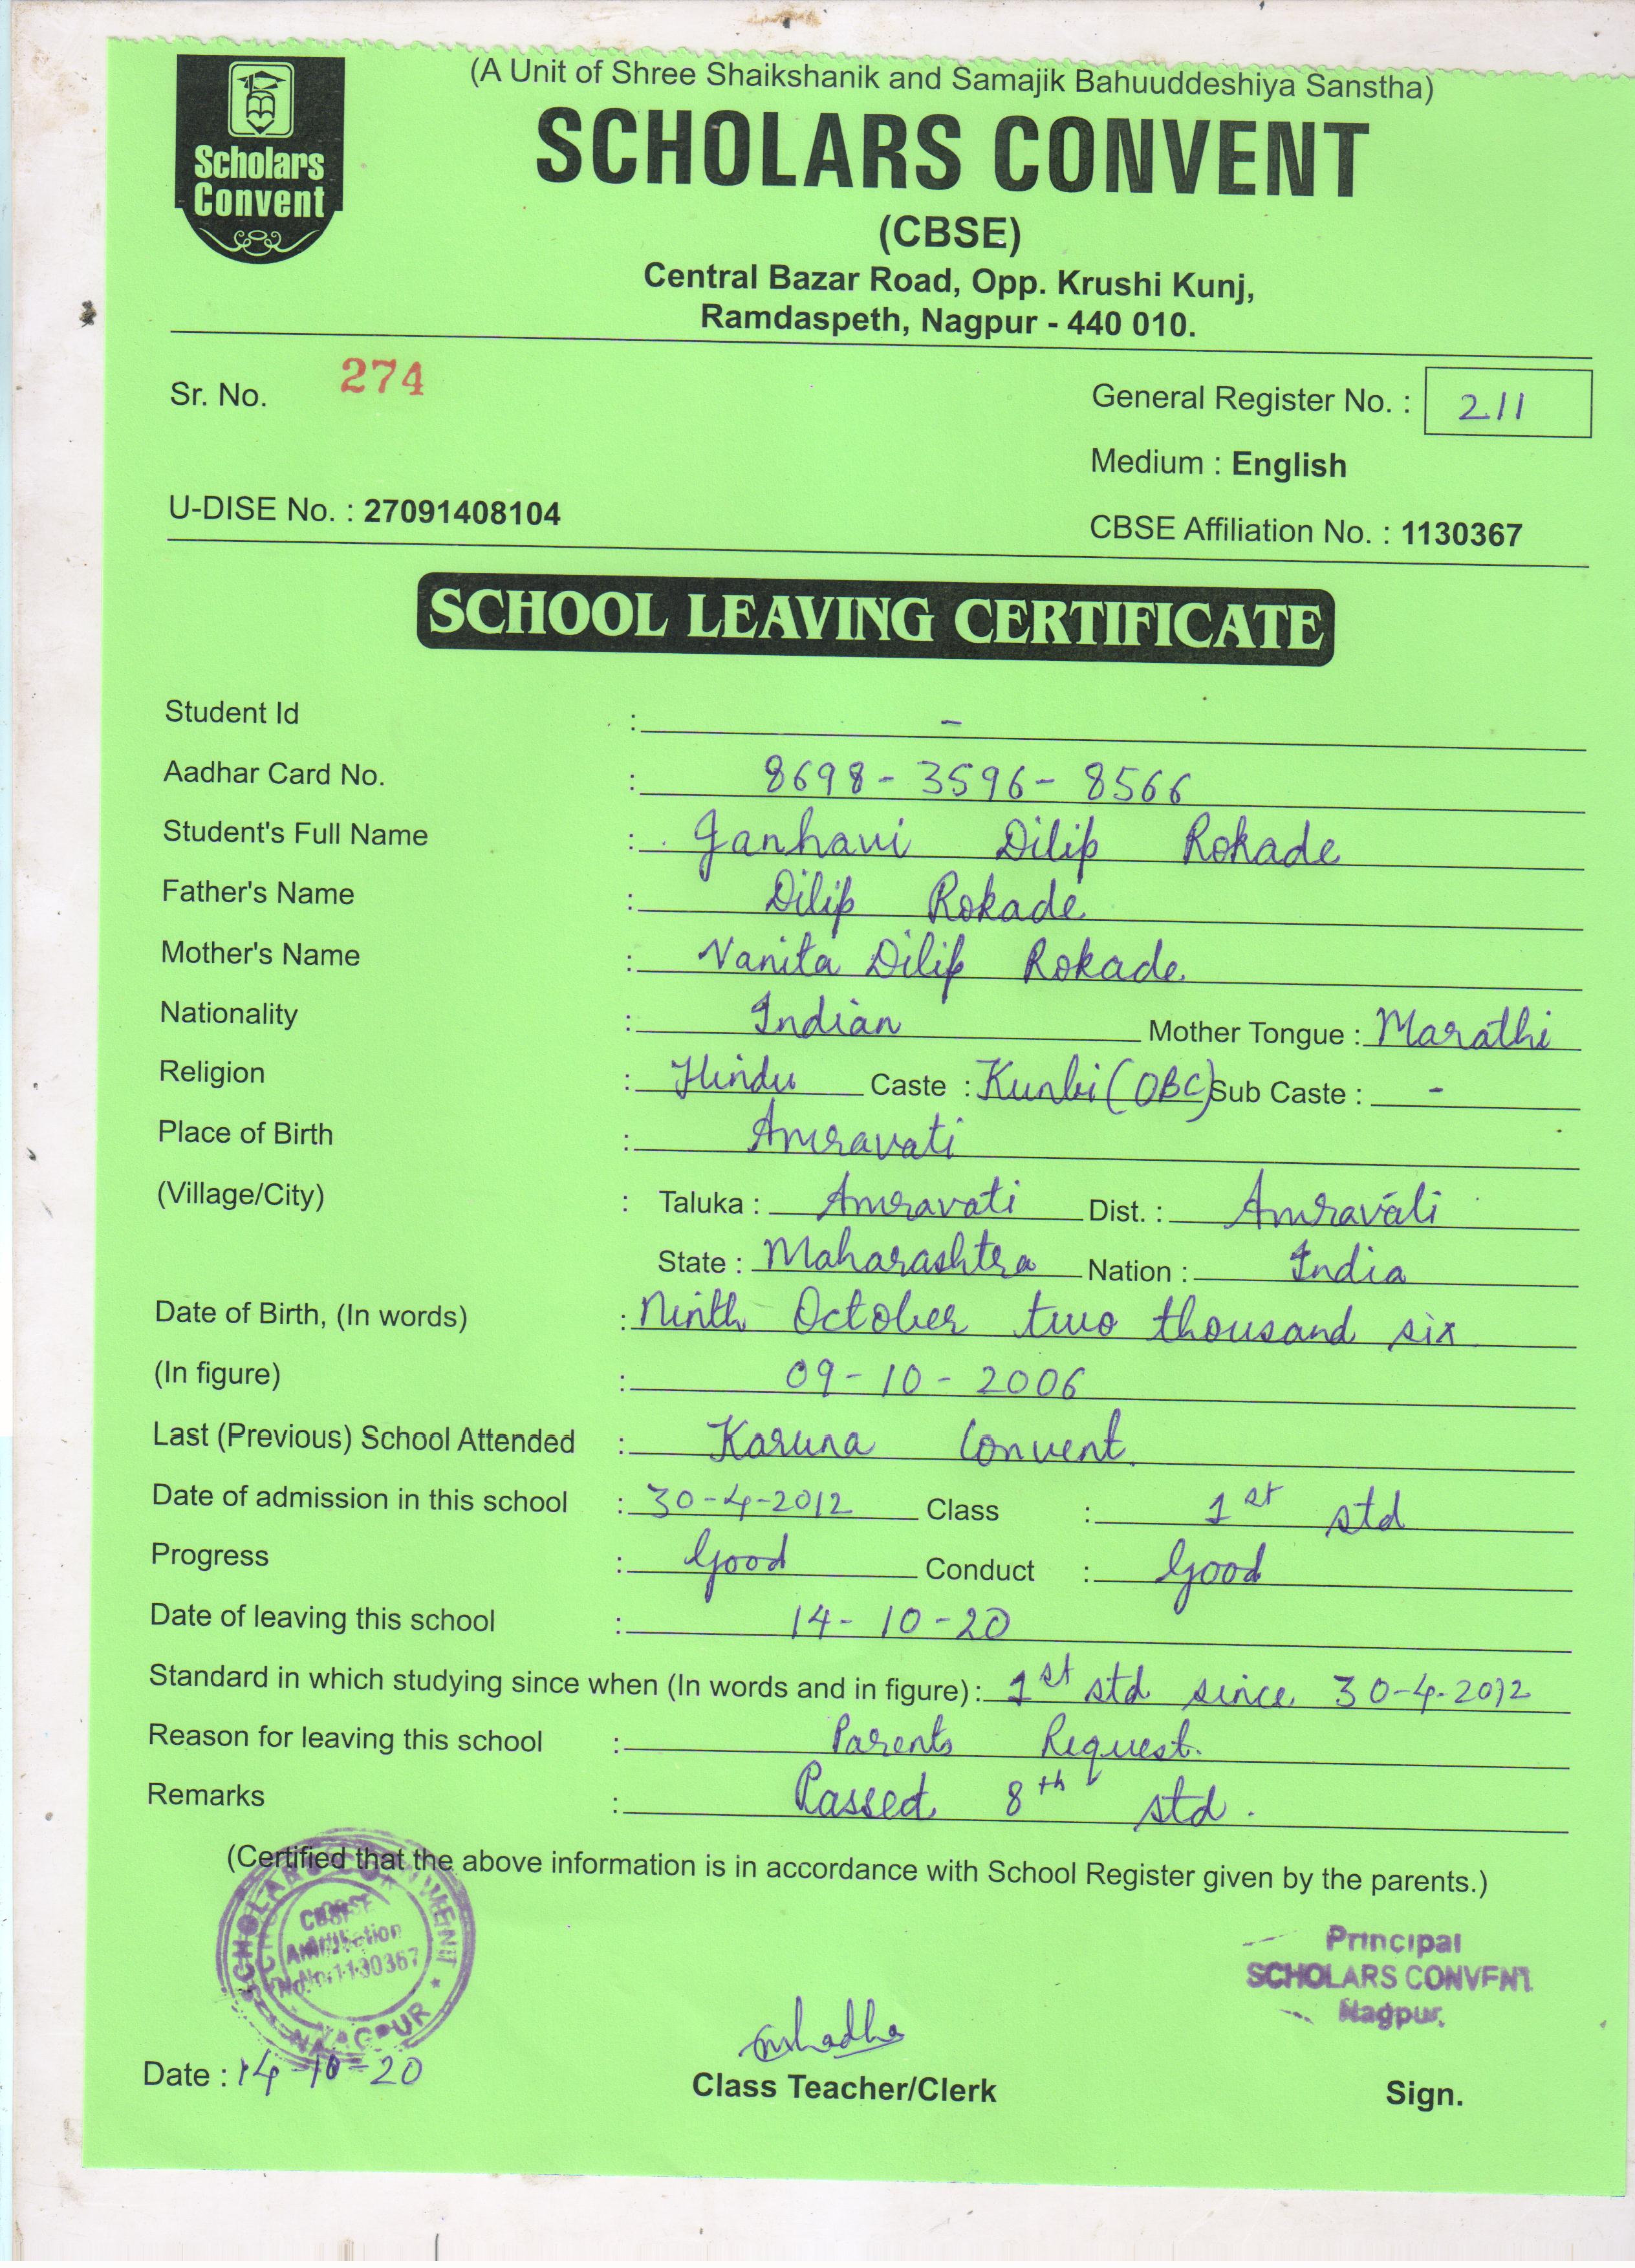 Scholars
Convent
(A Unit of Shree Shaikshanik and Samajik Bahuuddeshiya Sanstha)
SCHOLARS CONVENT
(CBSE)
Central Bazar Road, Opp. Krushi Kunj,
Ramdaspeth, Nagpur - 440 010.
Sr. No. 274
General Register No. : 211
Medium : English
U-DISE No. : 27091408104
CBSE Affiliation No. : 1130367
SCHOOL LEAVING CERTIFICATE
Student Id : -
Aadhar Card No. : 8698-3596-8566
Student's Full Name : Janhavi Dilip Rokade
Father's Name : Dilip Rokade
Mother's Name : Vanita Dilip Rokade
Nationality : Indian Mother Tongue : Marathi
Religion : Hindu Caste : Kunbi (OBC) Sub Caste : -
Place of Birth : Amravati
(Village/City) : Taluka : Amravati Dist. : Amravati
State : Maharashtra Nation : India
Date of Birth, (In words) : Ninth October two thousand six
(In figure) : 09-10-2006
Last (Previous) School Attended : Karuna Convent.
Date of admission in this school : 30-4-2012 Class : 1st std
Progress : Good Conduct : Good
Date of leaving this school : 14-10-20
Standard in which studying since when (In words and in figure) : 1st std since 30-4-2012
Reason for leaving this school : Parents Request.
Remarks : Passed 8th std.
(Certified that the above information is in accordance with School Register given by the parents.)
SCHOLARS CONVENT
CBSE
Affiliation
No. 1130367
NAGPUR
Principal
SCHOLARS CONVENT
Nagpur.
Date : 14-10-20
Class Teacher/Clerk
Sign.